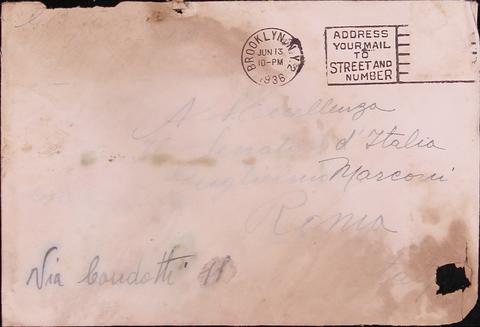 BROOKLYN, N.Y. 2
JUN 13
10-PM
1936
ADDRESS
YOUR MAIL
TO
STREET AND
NUMBER
A S. Eccellenza
Senato d'Italia
Guglielmo Marconi
Roma
Via Condotti 11